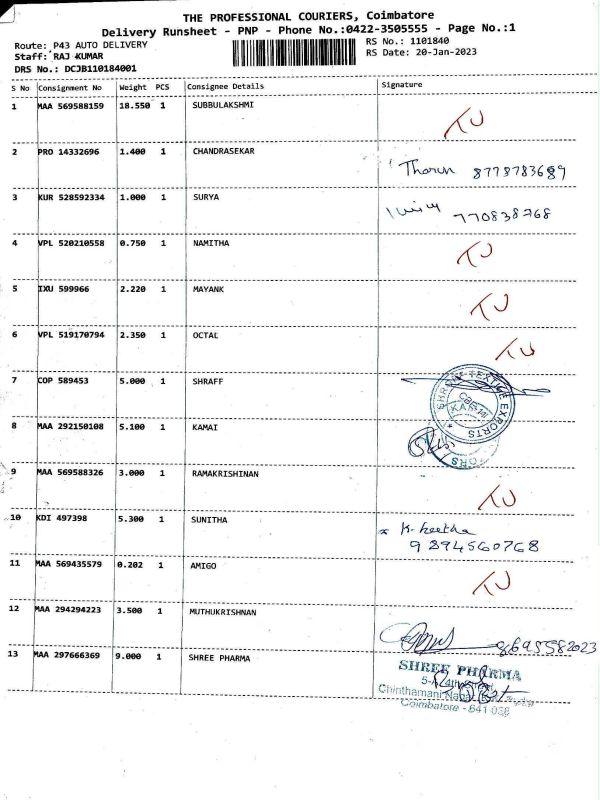 THE PROFESSIONAL COURIERS, Coimbatore
Delivery Runsheet - PNP - Phone No.:0422-3505555 - Page No.:1
Route: P43 AUTO DELIVERY RS No.: 1101840
Staff: RAJ KUMAR RS Date: 20-Jan-2023
DRS No.: DCJB110184001
S No Consignment No Weight PCS Consignee Details Signature
1 MAA 569588159 18.550 1 SUBBULAKSHMI
2 PRO 14332696 1.400 1 CHANDRASEKAR
Tharun 8778783689
3 KUR 528592334 1.000 1 SURYA
770838768
4 VPL 520210558 0.750 1 NAMITHA
5 IXU 599966 2.220 1 MAYANK
6 VPL 519170794 2.350 1 OCTAL
7 COP 589453 5.000 1 SHRAFF
TEXTILE EXPORTS
8 MAA 292150108 5.100 1 KAMAI
9 MAA 569588326 3.000 1 RAMAKRISHINAN
10 KDI 497398 5.300 1 SUNITHA
9894560768
11 MAA 569435579 0.202 1 AMIGO
12 MAA 294294223 3.500 1 MUTHUKRISHNAN
13 MAA 297666369 9.000 1 SHREE PHARMA
SHREE PHARMA
Chinthamani Nagar
Coimbatore - 641 038